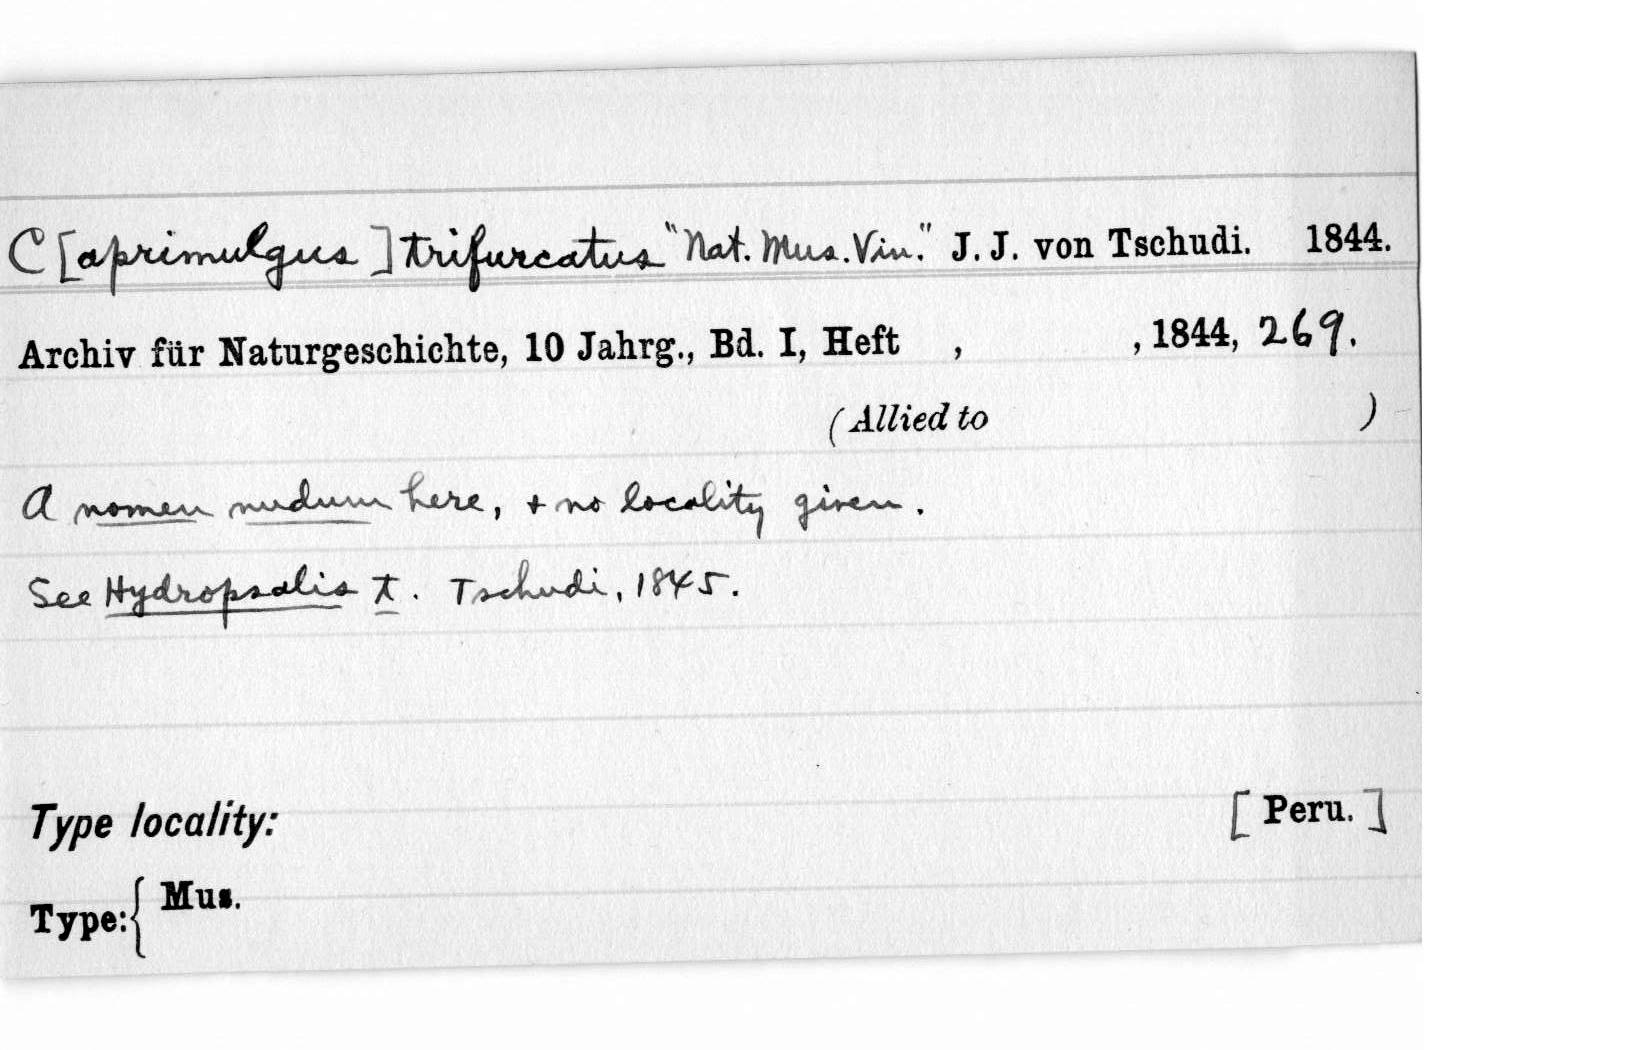 C[aprimulgus] trifurcatus "Nat. Mus. Vin." J. J. von Tschudi. 1844.
Archiv für Naturgeschichte, 10 Jahrg., Bd. I, Heft , , 1844, 269.
(Allied to )
A nomen nudum here, + no locality given.
See Hydropsalis t. Tschudi, 1845.
Type locality: [Peru.]
Type:{ Mus.